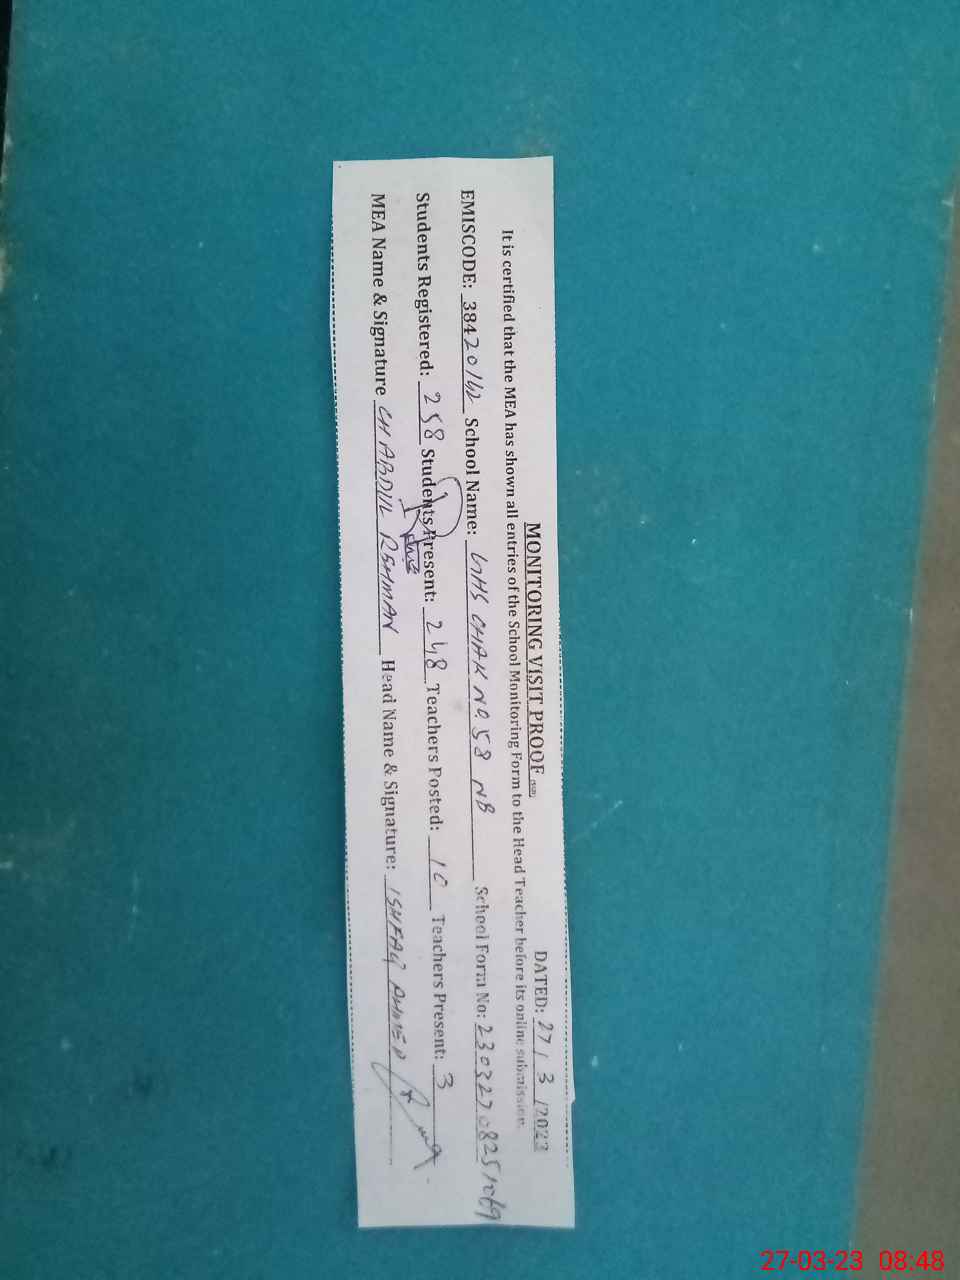 MONITORING VISIT PROOF DATED: 27/3/2023
It is certified that the MEA has shown all entries of the School Monitoring Form to the Head Teacher before its online submission.
EMISCODE: 38420162 School Name: GHS CHAK NO 58 NB School Form No: 23032708251069
Students Registered: 258 Students Present: 248 Teachers Posted: 10 Teachers Present: 3
MEA Name & Signature CH ABDUL REHMAN Head Name & Signature: ISHFAQ AHMED
27-03-23 08:48